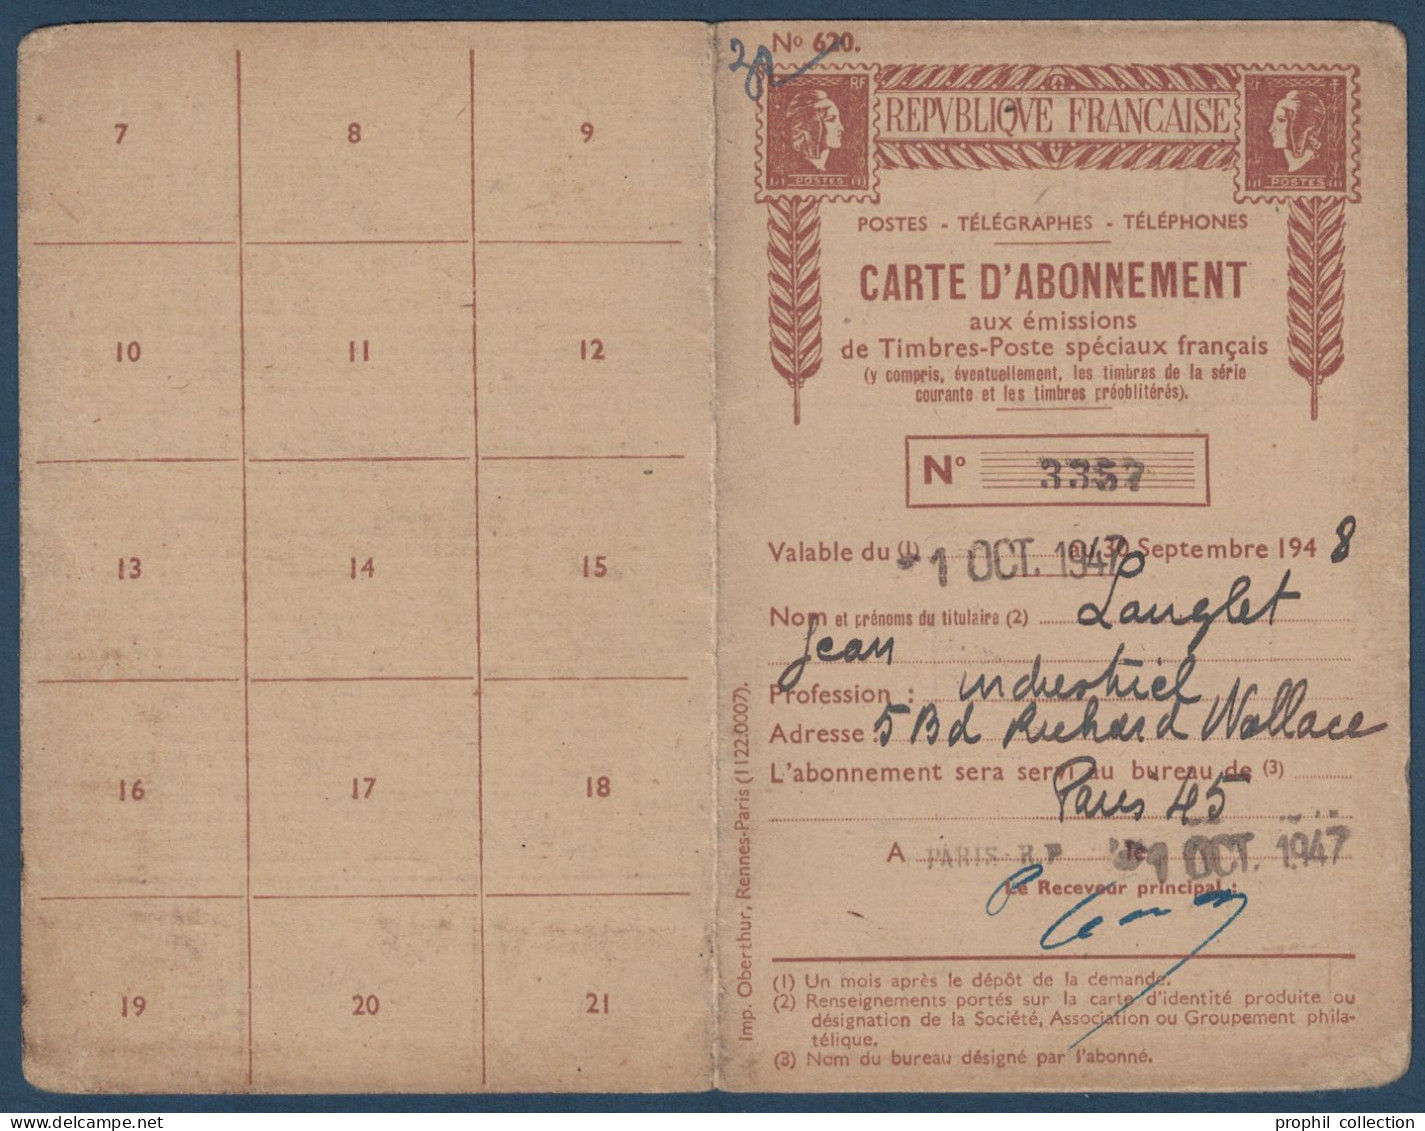 7 8 9
10 11 12
13 14 15
16 17 18
19 20 21
Imp. Oberthur, Rennes-Paris (1122.0007).
Nº 620.
RF
POSTES
REPVBLIQVE FRANCAISE
POSTES
POSTES - TÉLÉGRAPHES - TÉLÉPHONES
CARTE D'ABONNEMENT
aux émissions
de Timbres-Poste spéciaux français
(y compris, éventuellement, les timbres de la série
courante et les timbres préoblitérés).
Nº 3357
Valable du (1) -1 OCT. 1947 au 30 Septembre 1948
Nom et prénoms du titulaire (2) Langlet
Jean
Profession : industriel
Adresse : 5 Bd Richard Wallace
L'abonnement sera servi au bureau de (3)
Paris 45
A PARIS R.P le -1 OCT. 1947
Le Receveur principal :
(1) Un mois après le dépôt de la demande.
(2) Renseignements portés sur la carte d'identité produite ou
désignation de la Société, Association ou Groupement phila-
télique.
(3) Nom du bureau désigné par l'abonné.
prophil collection